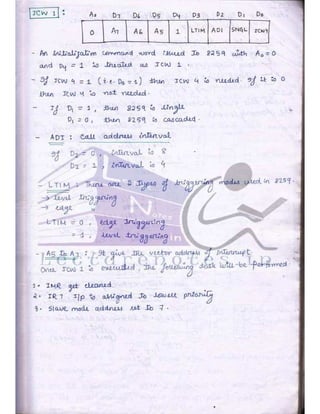 ICW 1 : A0 D7 D6 D5 D4 D3 D2 D1 D0
0 A7 A6 A5 1 LTIM ADI SNGL ICW4
- An Initialization command word issued to 8259 with A0 = 0
and D4 = 1 is treated as ICW 1.
- If ICW 4 = 1 (i.e. D0 = 1) then ICW 4 is needed. If it is 0
then ICW 4 is not needed.
- If D1 = 1, then 8259 is single
D1 = 0, then 8259 is cascaded.
- ADI : Call address interval
If D2 = 0, interval is 8
D2 = 1, interval is 4
- LTIM : There are 2 types of triggering modes used in 8259.
→ level triggering
→ edge "
- LTIM = 0, edge triggering
= 1, level triggering
- A5 to A7 : It give the vector address of Interrupt
Once ICW 1 is executed, the following task will be performed
1. IMR get cleared
2. IR7 I/p is assigned to lowest priority
3. Slave mode address set to 7.